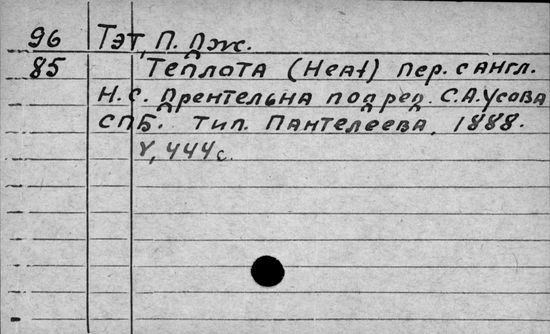 96 Тэт, П. Дж.
85 Теплота (Heat) пер. с англ.
Н. С. Дрентельна под ред. С. А. Усова
СПБ. тип. Пантелеева, 1888.
V, 444 с.